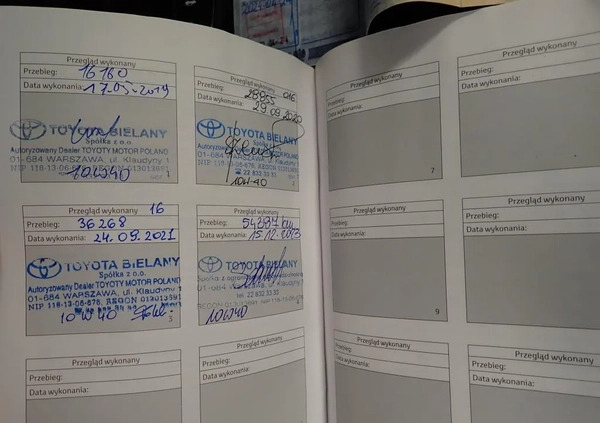 Przegląd wykonany
Przebieg: 16160
Data wykonania: 17.05.2019
TOYOTA BIELANY
Spółka z o.o.
Autoryzowany Dealer TOYOTY MOTOR POLAND
01-684 WARSZAWA, ul. Klaudyny 1
10W40
Przegląd wykonany
Przebieg: 28955
Data wykonania: 29.09.2020
TOYOTA BIELANY
Spółka z o.o.
Autoryzowany Dealer TOYOTY MOTOR POLAND
01-684 WARSZAWA, ul. Klaudyny 1
22 832 33 31
10W-40
2
Przegląd wykonany 16
Przebieg: 36268
Data wykonania: 24.09.2021
TOYOTA BIELANY
Spółka z o.o.
Autoryzowany Dealer TOYOTY MOTOR POLAND
01-684 WARSZAWA, ul. Klaudyny 1
NIP 118-13-06-676, REGON 013013891
10W40
3
Przegląd wykonany
Przebieg: 54387 km
Data wykonania: 15.12.
TOYOTA BIELANY
01-684 WARSZAWA, ul. Klaudyny 1
tel. 22 832 33 31
10W40
4
Przegląd wykonany
Przebieg:
Data wykonania:
Przegląd wykonany
Przebieg:
Data wykonania:
Przegląd wykonany
Przebieg:
Data wykonania:
7
Przegląd wykonany
Przebieg:
Data wykonania:
Przegląd wykonany
Przebieg:
Data wykonania:
9
Przegląd wykonany
Przebieg:
Data wykonania:
Przegląd wykonany
Przebieg:
Data wykonania:
Przegląd wykonany
Przebieg:
Data wykonania: